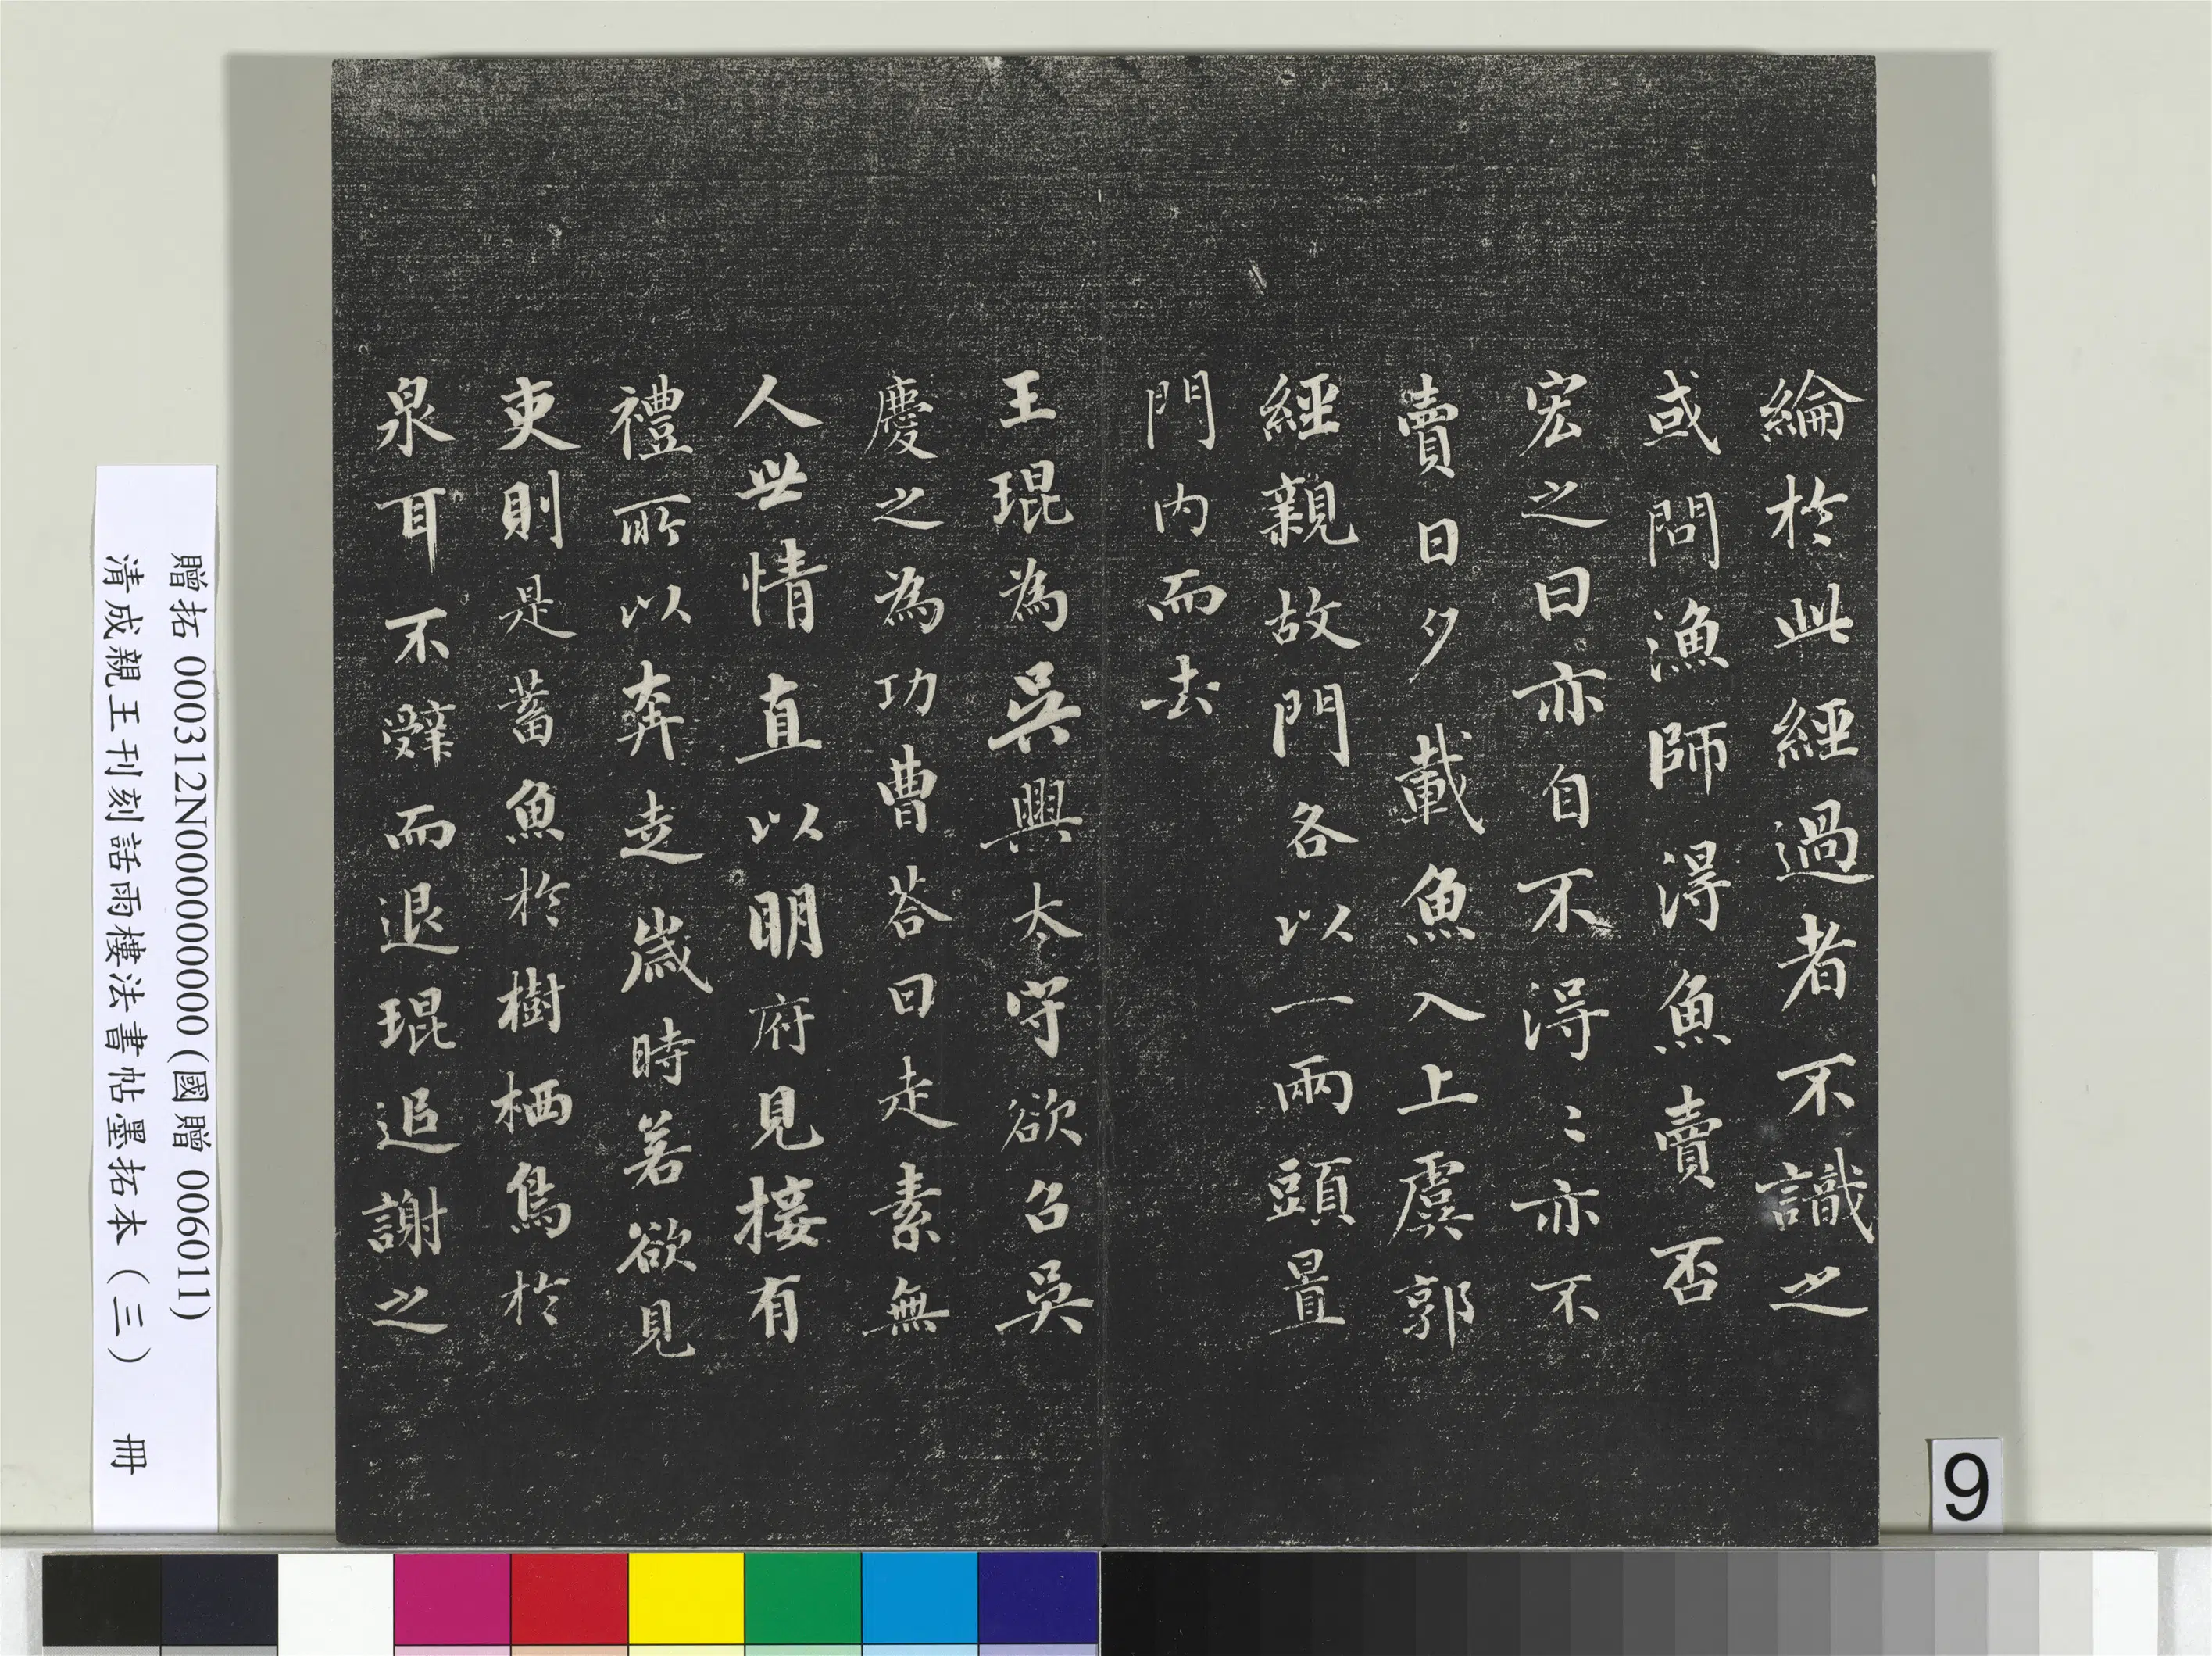 綸於此經過者不識之
或問漁師得魚賣否
宏之曰亦自不得〻亦不
賣日夕載魚入上虞郭
經親故門各以一兩頭置
門內而去
王琨為吳興太守欲召吳
慶之為功曹荅曰走素無
人世情直以明府見接有
禮所以奔走歲時若欲見
吏則是蓄魚於樹栖鳥於
泉耳不辭而退琨追謝之
贈拓 000312N000000000 (國贈 006011)
清成親王刊刻話雨樓法書帖墨拓本（三） 冊
9